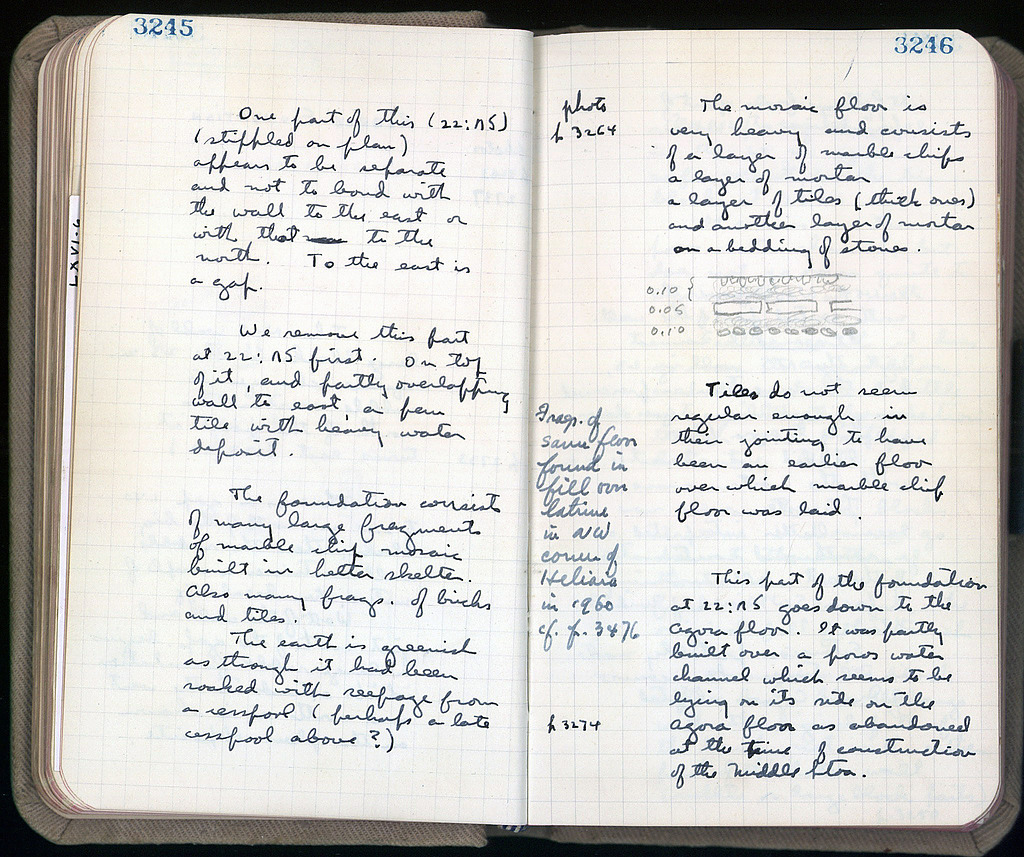 3245
One part of this (22:ΛS)
(stippled on plan)
appears to be separate
and not to bond with
the wall to the east or
with that to the
north. To the east is
a gap.
We remove this part
at 22:ΛS first. On top
of it, and partly overlapping
wall to east, a few
tile with heavy water
deposit.
The foundation consists
of many large fragments
of marble chip mosaic
built in helter skelter.
Also many frags. of bricks
and tiles.
The earth is greenish
as though it had been
soaked with seepage from
a cesspool (perhaps a late
cesspool above?)
LXVI-6
3246
photo
p 3264
The mosaic floor is
very heavy and consists
of a layer of marble chips
a layer of mortar
a layer of tiles (thick ones)
and another layer of mortar
on a bedding of stones.
0.10 {
0.05
0.10
Tiles do not seem
regular enough in
their jointing to have
been an earlier floor
over which marble chip
floor was laid.
Frag. of
same floor
found in
fill over
latrine
in NW
corner of
Heliaia
in 1960
cf. p. 3476
This part of the foundation
at 22:ΛS goes down to the
agora floor. It was partly
built over a poros water
channel which seems to be
lying on its side on the
agora floor as abandoned
at the time of construction
of the Middle Stoa.
p 3274